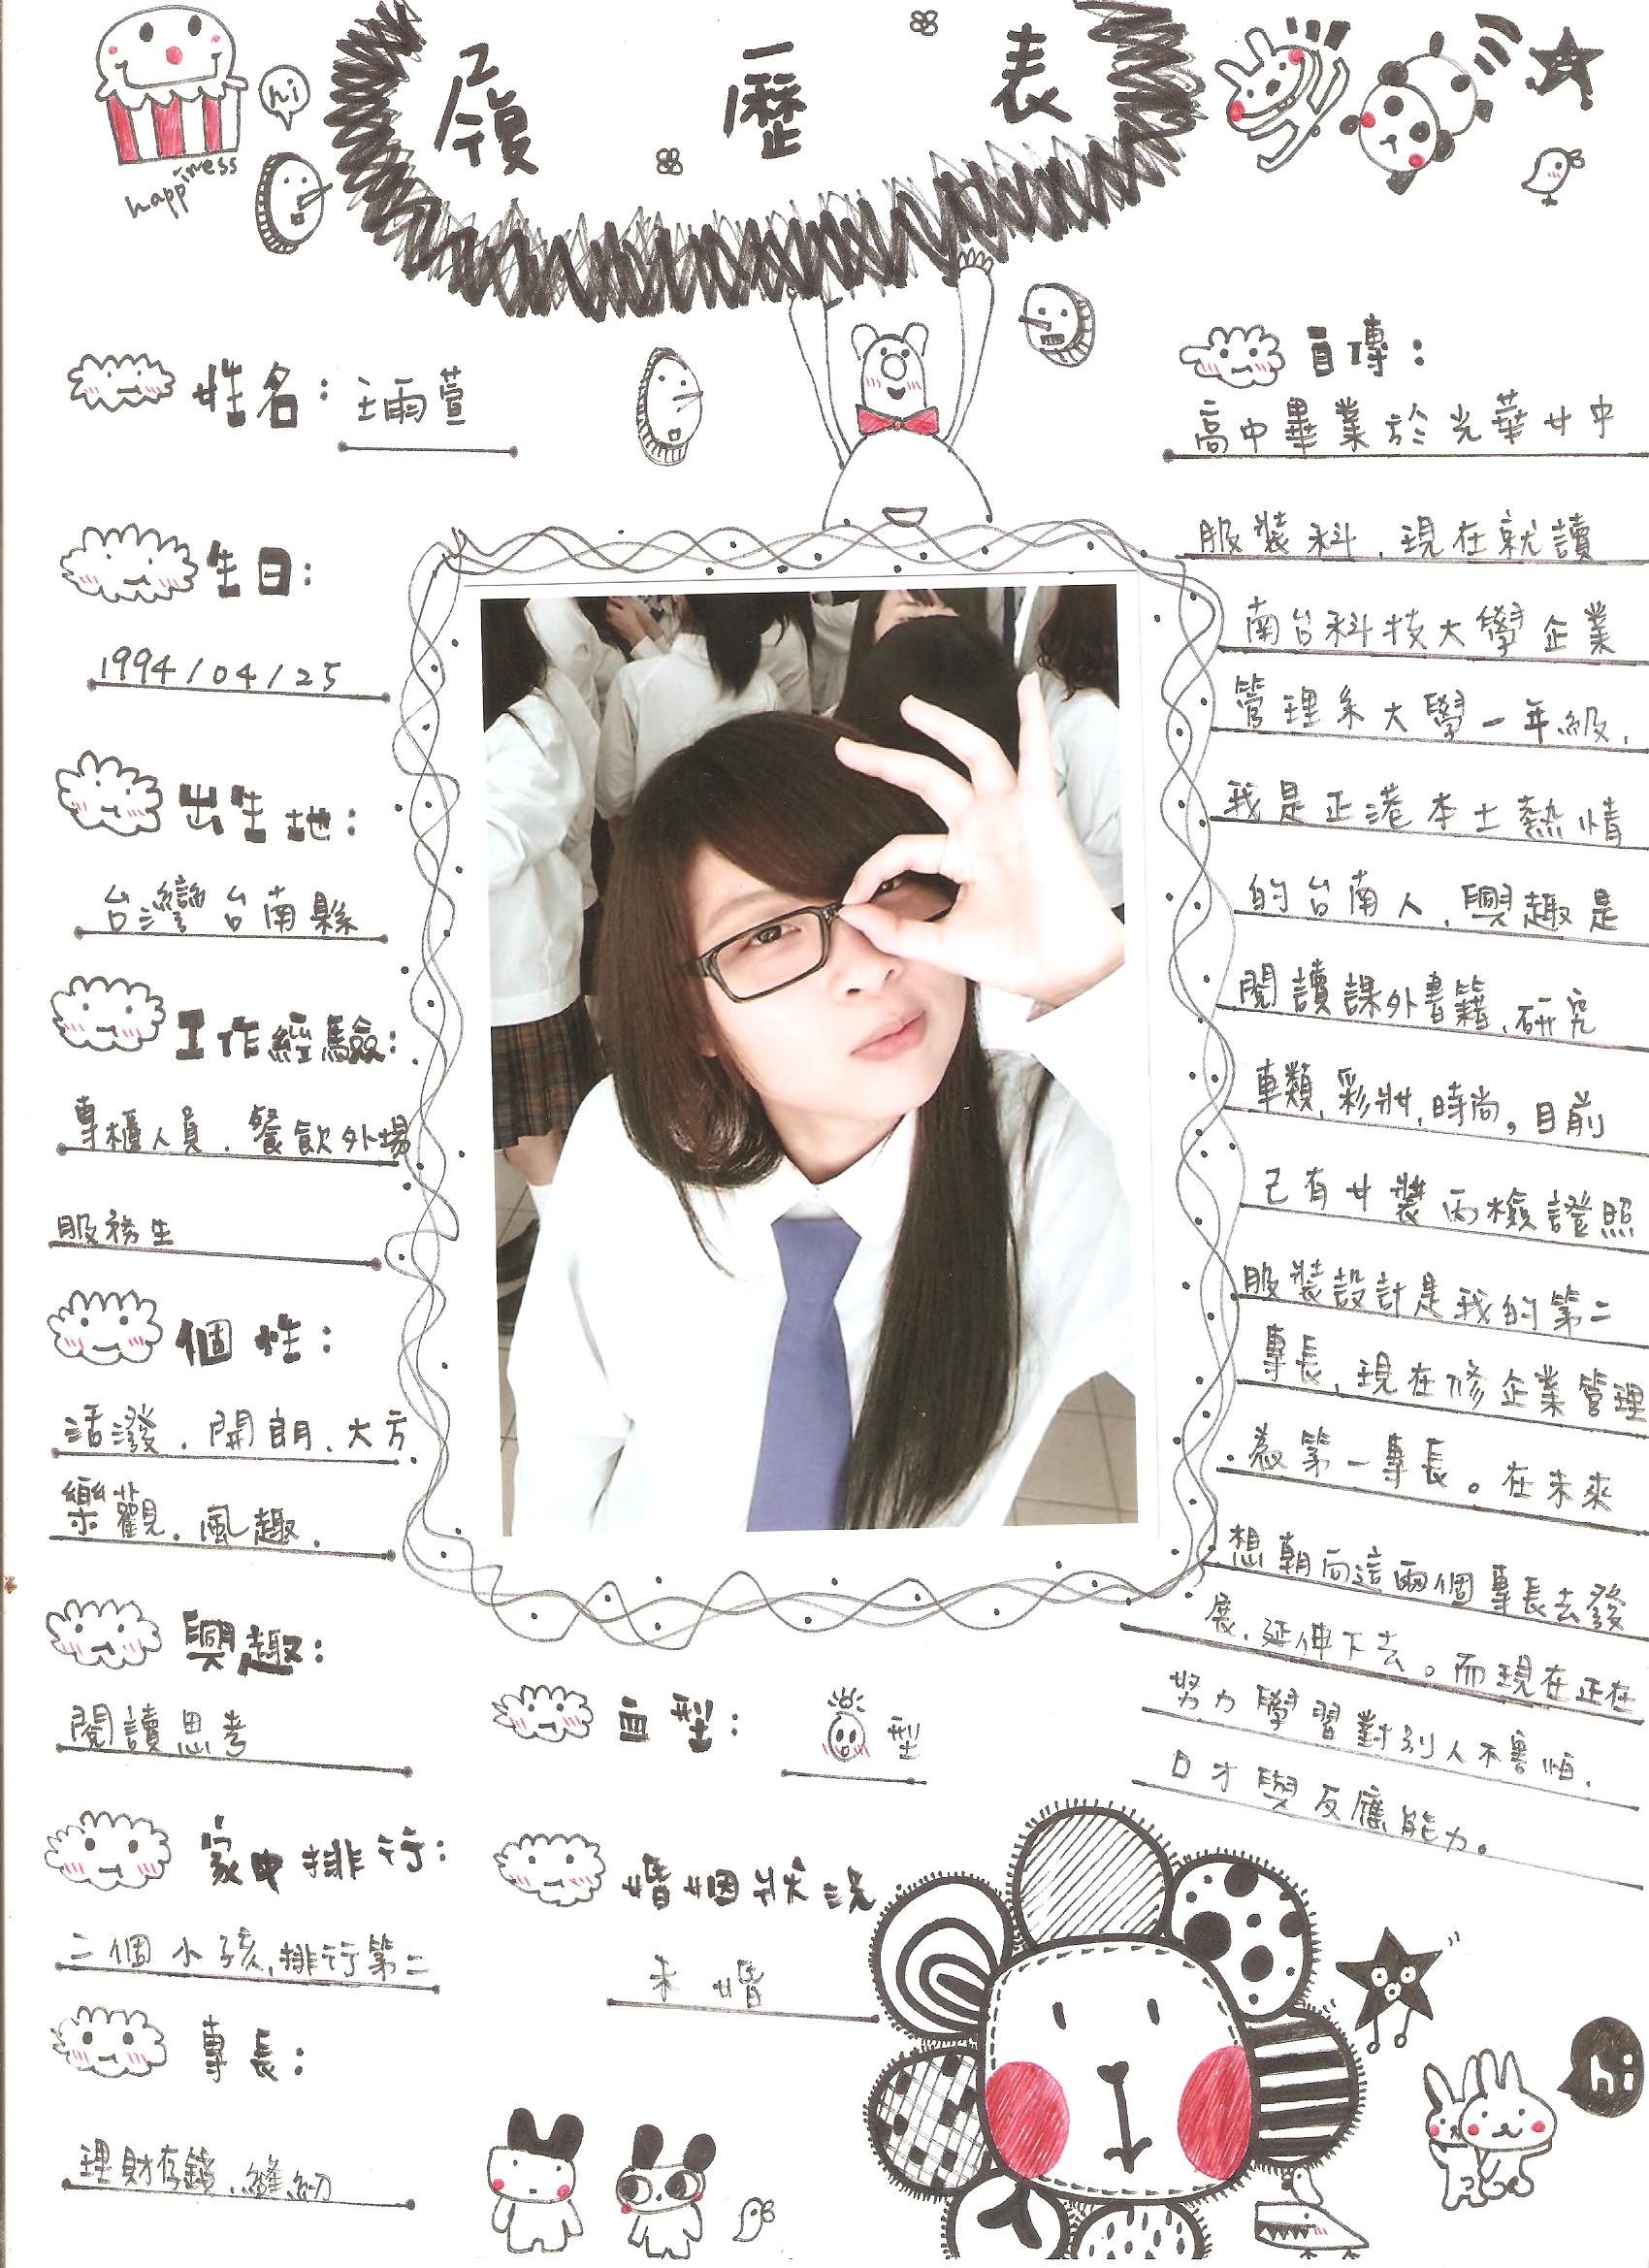 履歷表
hi
happiness
姓名：王雨萱
生日：
1994/04/25
出生地：
台灣台南縣
工作經驗：
專櫃人員、餐飲外場
服務生
個性：
活潑、開朗、大方
樂觀、風趣、
興趣：
閱讀思考
家中排行：
二個小孩、排行第二
專長：
理財存錢、縫紉
血型：
型
婚姻狀況
未婚
自傳：
高中畢業於光華女中
服裝科、現在就讀
南台科技大學企業
管理系大學一年級、
我是正港本土熱情
的台南人、興趣是
閱讀課外書籍、研究
車類、彩妝、時尚，目前
已有女裝丙檢證照
服裝設計是我的第二
專長、現在修企業管理
為第一專長。在未來
想朝向這兩個專長去發
展、延伸下去。而現在正在
努力學習對別人不害怕、
口才與反應能力。
hi